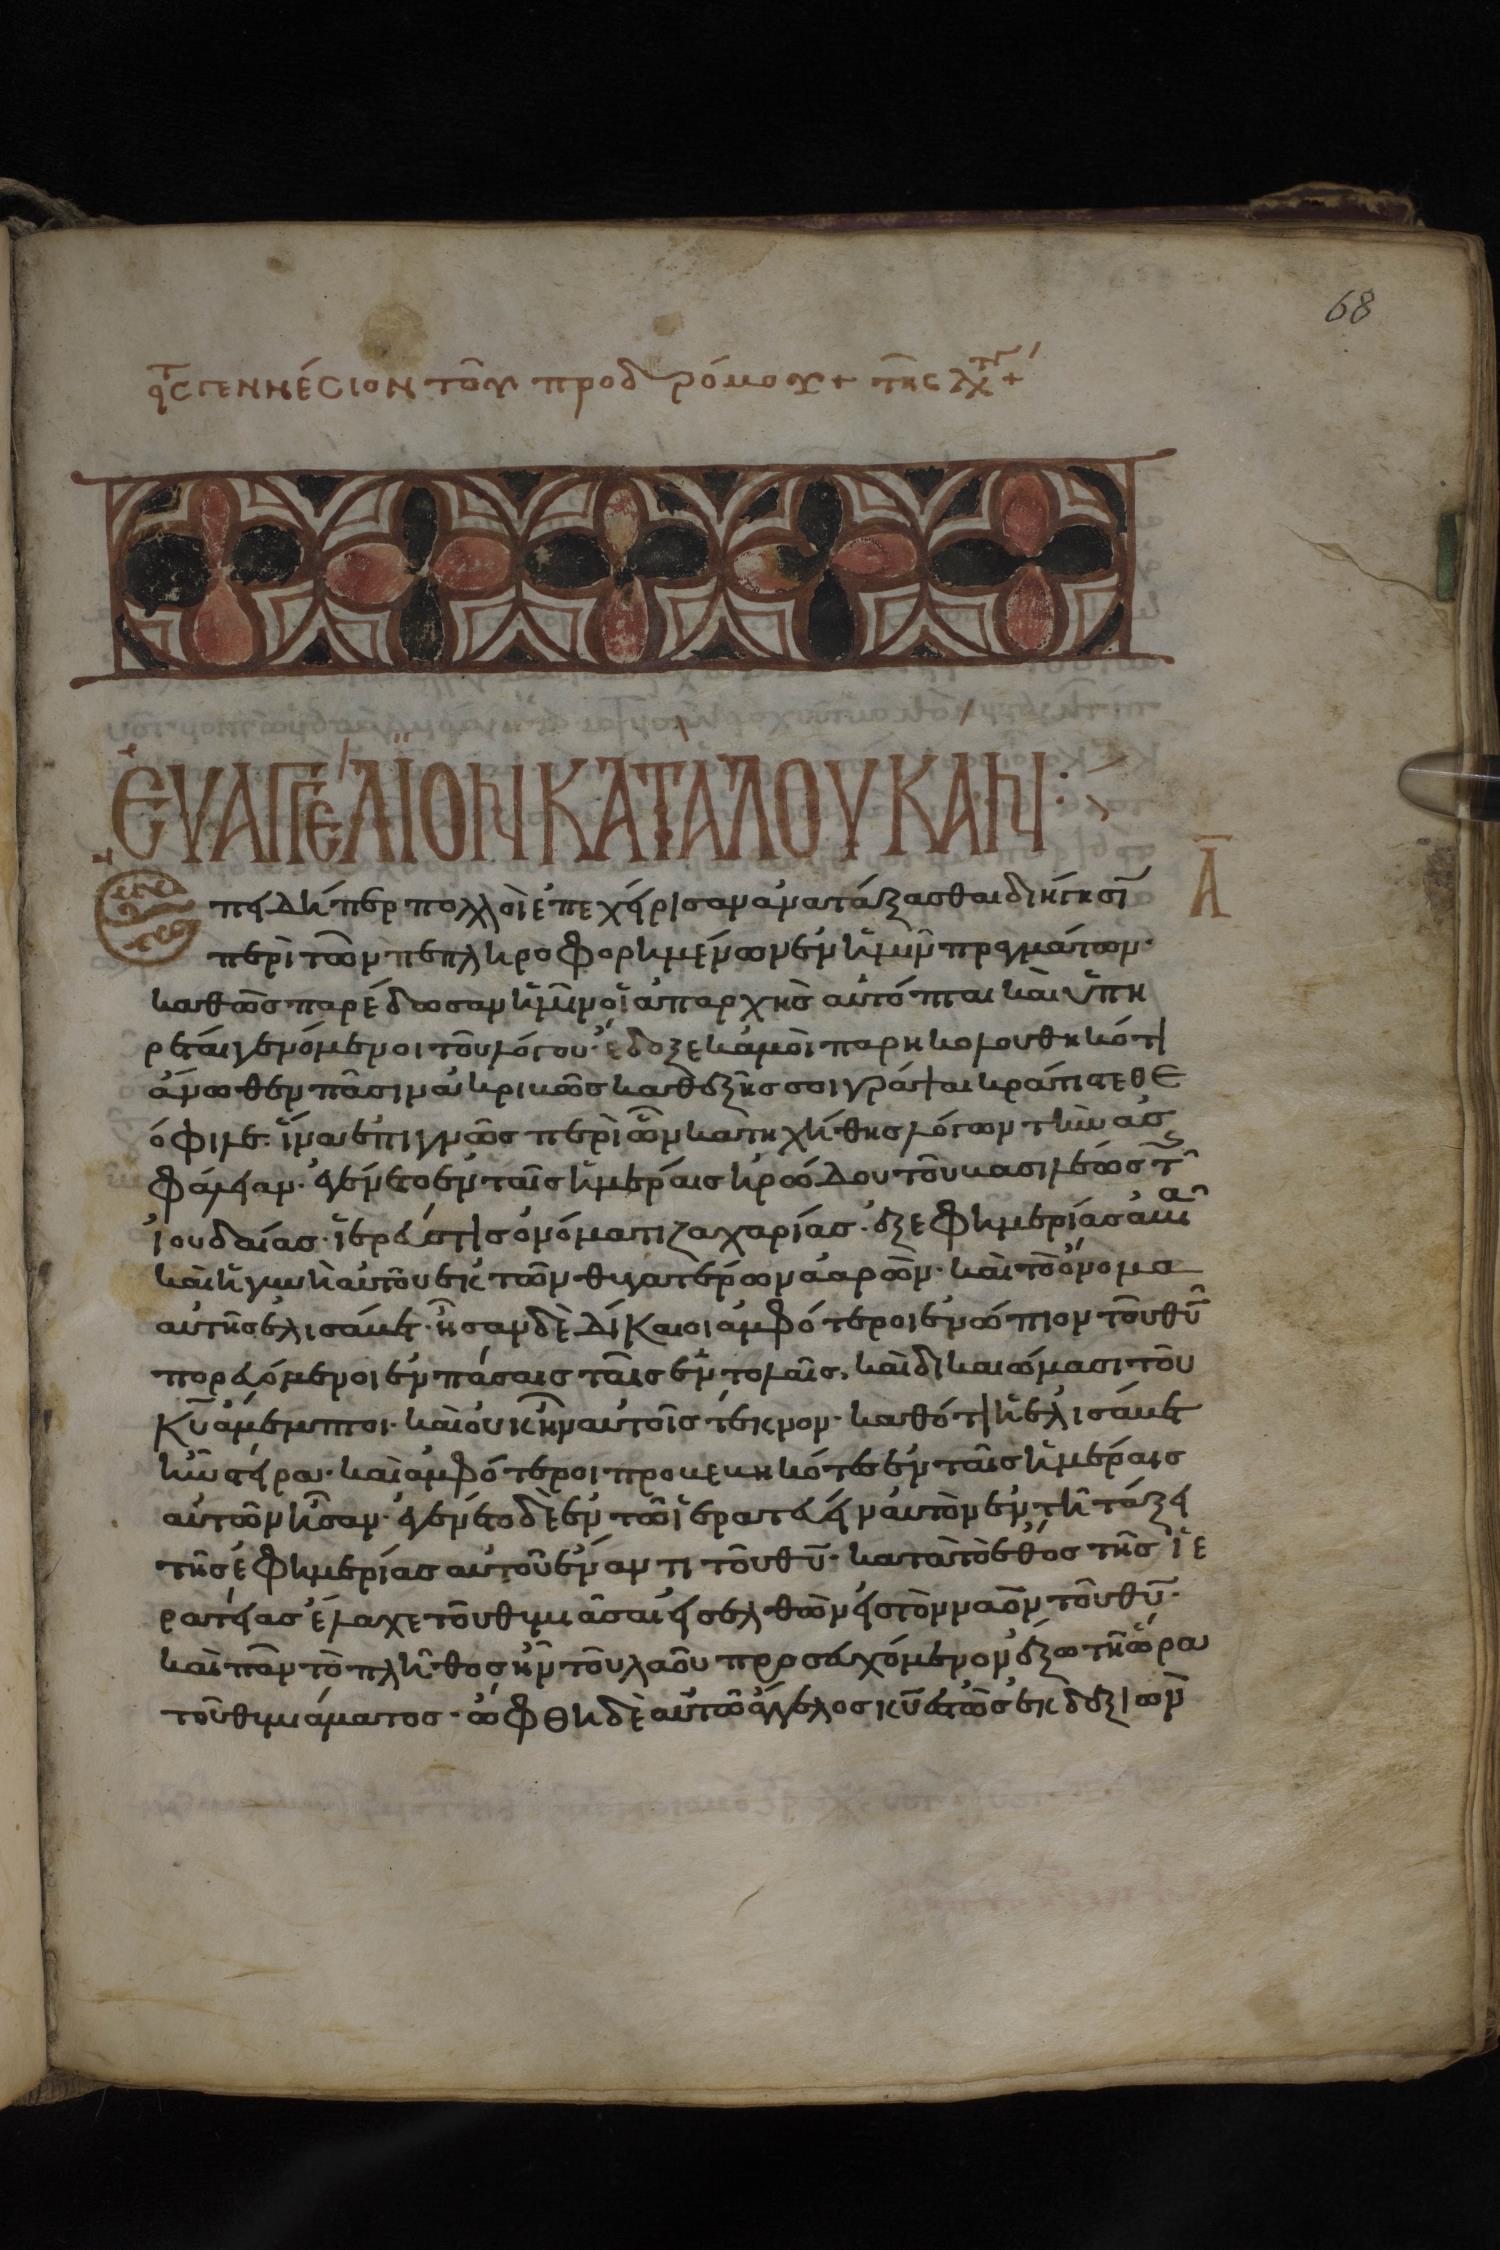 68
γεννέσιον τοῦ προδρόμου + τῆς
ΕΥΑΓΓΕΛΙΟΝ ΚΑΤΑ ΛΟΥΚΑΝ:
Α
Ἐπειδήπερ πολλοὶ ἐπεχείρισαν ἀνατάξασθαι διήγησϊ
περὶ τῶν πεπληροφορημένων ἐν ἡμῖν πραγμάτων·
καθὼς παρέδωσαν ἡμῖν οἱ ἀπαρχῆς αὐτόπται καὶ ὑπη
ρέται γενόμενοι τοῦ λόγου· ἔδοξε κἀμοὶ παρηκολουθηκότι
ἄνωθεν πᾶσιν ἀκριβῶς καθεξῆς σοι γράψαι κράτιστε Θε
όφιλε· ἵνα ἐπιγνῶς περὶ ὧν κατηχήθης λόγων τὴν ἀσ
φάλειαν· ἐγένετο ἐν ταῖς ἡμέραις ἡρώδου τοῦ βασιλέως τῆς
ἰουδαίας· ἱερεύς τις ὀνόματι ζαχαρίας· ἐξ ἐφημερίας ἀβιὰ
καὶ ἡ γυνὴ αὐτοῦ ἐκ τῶν θυγατέρων ἀαρών· καὶ τὸ ὄνομα
αὐτῆς ἐλισάβετ· ἦσαν δὲ δίκαιοι ἀμφότεροι ἐνώπιον τοῦ θυ
πορευόμενοι ἐν πάσαις ταῖς ἐντολαῖς, καὶ δικαιώμασι τοῦ
κυ ἄμεμπτοι· καὶ οὐκ ἦν αὐτοῖς τέκνον· καθότι ἡ ἐλισάβετ
ἦν στείρα· καὶ ἀμφότεροι προβεβηκότες ἐν ταῖς ἡμέραις
αὐτῶν ἦσαν· ἐγένετο δὲ ἐν τῶ ἱερατεύειν αὐτὸν ἐν τῆ τάξει
τῆς ἐφημερίας αὐτοῦ ἔναντι τοῦ θυ· κατὰ τὸ ἔθος τῆς ἱε
ρατείας ἔλαχε τοῦ θυμιᾶσαι εἰσελθὼν εἰς τὸν ναὸν τοῦ θυ·
καὶ πᾶν τὸ πλῆθος ἦν τοῦ λαοῦ προσευχόμενον ἔξω τῆ ὥρα
τοῦ θυμιάματος· ὤφθη δὲ αὐτῶ ἄγγελος κυ ἑστὼς ἐκ δεξιῶν